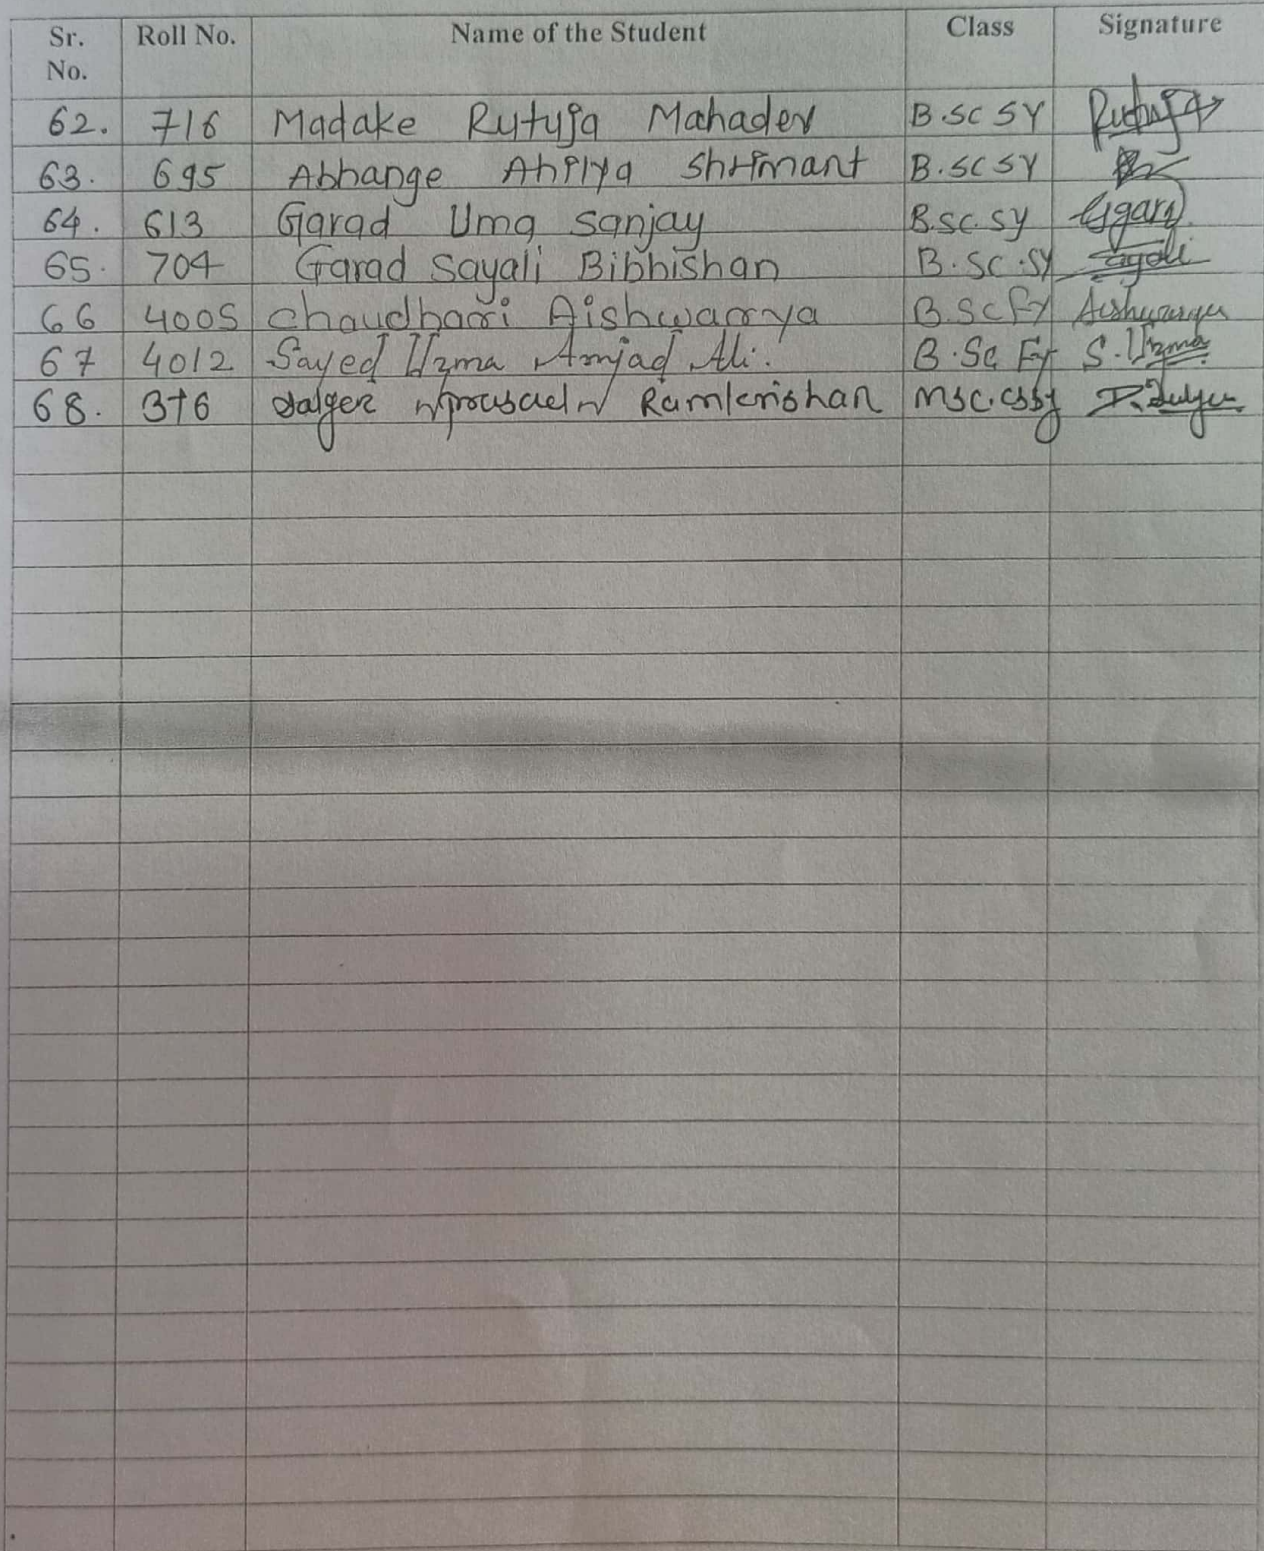 Sr. No. Roll No. Name of the Student Class Signature
62. 716 Madake Rutuja Mahadev B.SC SY Rutuja
63. 695 Abhange Ahilya Shrimant B.SC SY
64. 613 Garad Uma Sanjay B.SC.SY Ugarad
65. 704 Garad Sayali Bibhishan B.SC.SY Sayali
66 4005 Chaudhari Aishwarya B.SC FY Aishwarya
67 4012 Sayed Uzma Amjad Ali. B.Sc FY S.Uzma
68. 376 Ramkrishan MSC.CSSY